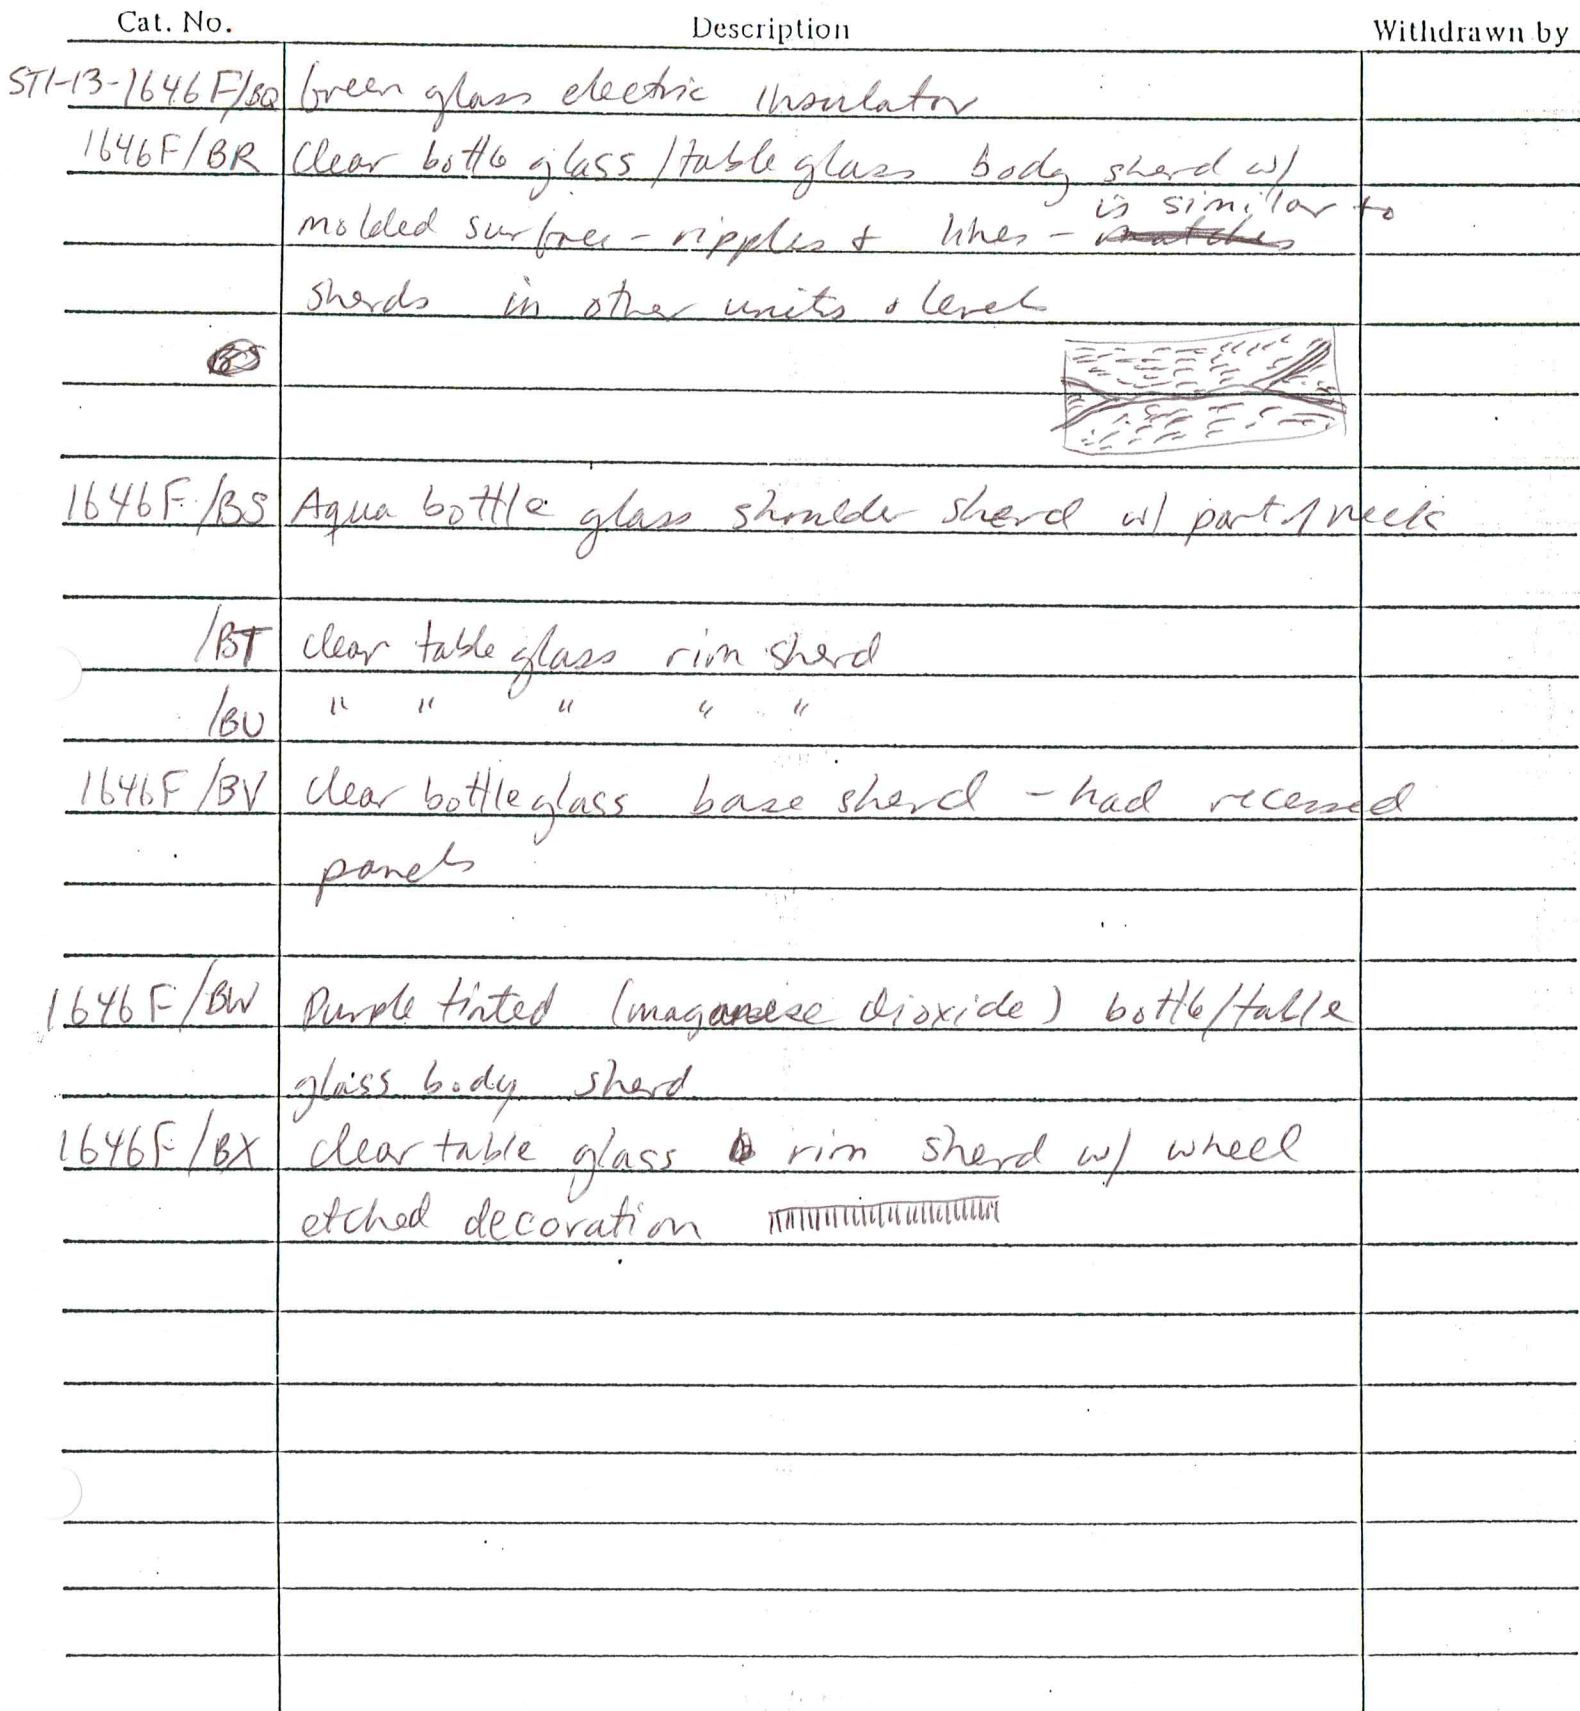 Cat. No. Description Withdrawn by
ST1-13-1646F/BQ Green glass electric insulator
1646F/BR Clear bottle glass/table glass body sherd w/
is similar to
molded surface - ripples + lines - matches
sherds in other units + levels
BS
1646F/BS Aqua bottle glass shoulder sherd w/ part of neck
/BT clear table glass rim sherd
/BU " " " " "
1646F/BV clear bottle glass base sherd - had recessed
panels
1646F/BW Purple tinted (maganese dioxide) bottle/table
glass body sherd
1646F/BX clear table glass rim sherd w/ wheel
etched decoration